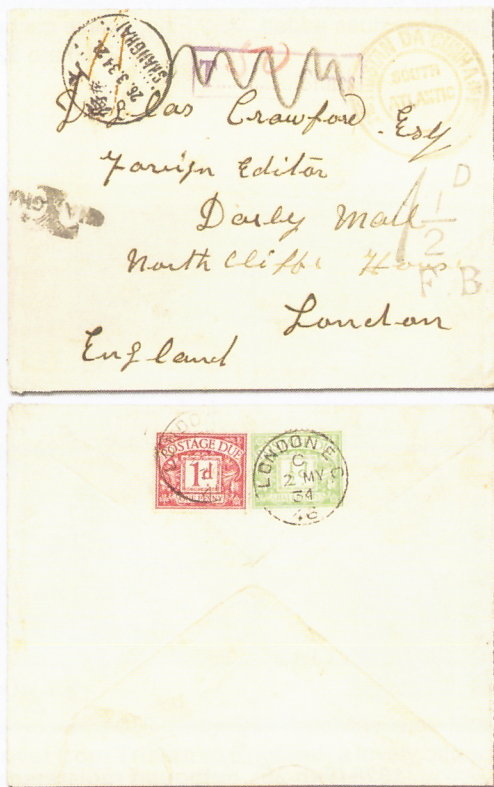 SHANGHAI
26.3.34 20
T
TRISTAN DA CUNHA
SOUTH
ATLANTIC
Douglas Crawford Esq
Foreign Editor
Daily Mail
North Cliffe House
London
England
1 1/2 D
F.B.
LONDON
POSTAGE DUE
1d
ONE PENNY
LONDON E.C
C
2 MY
34
46